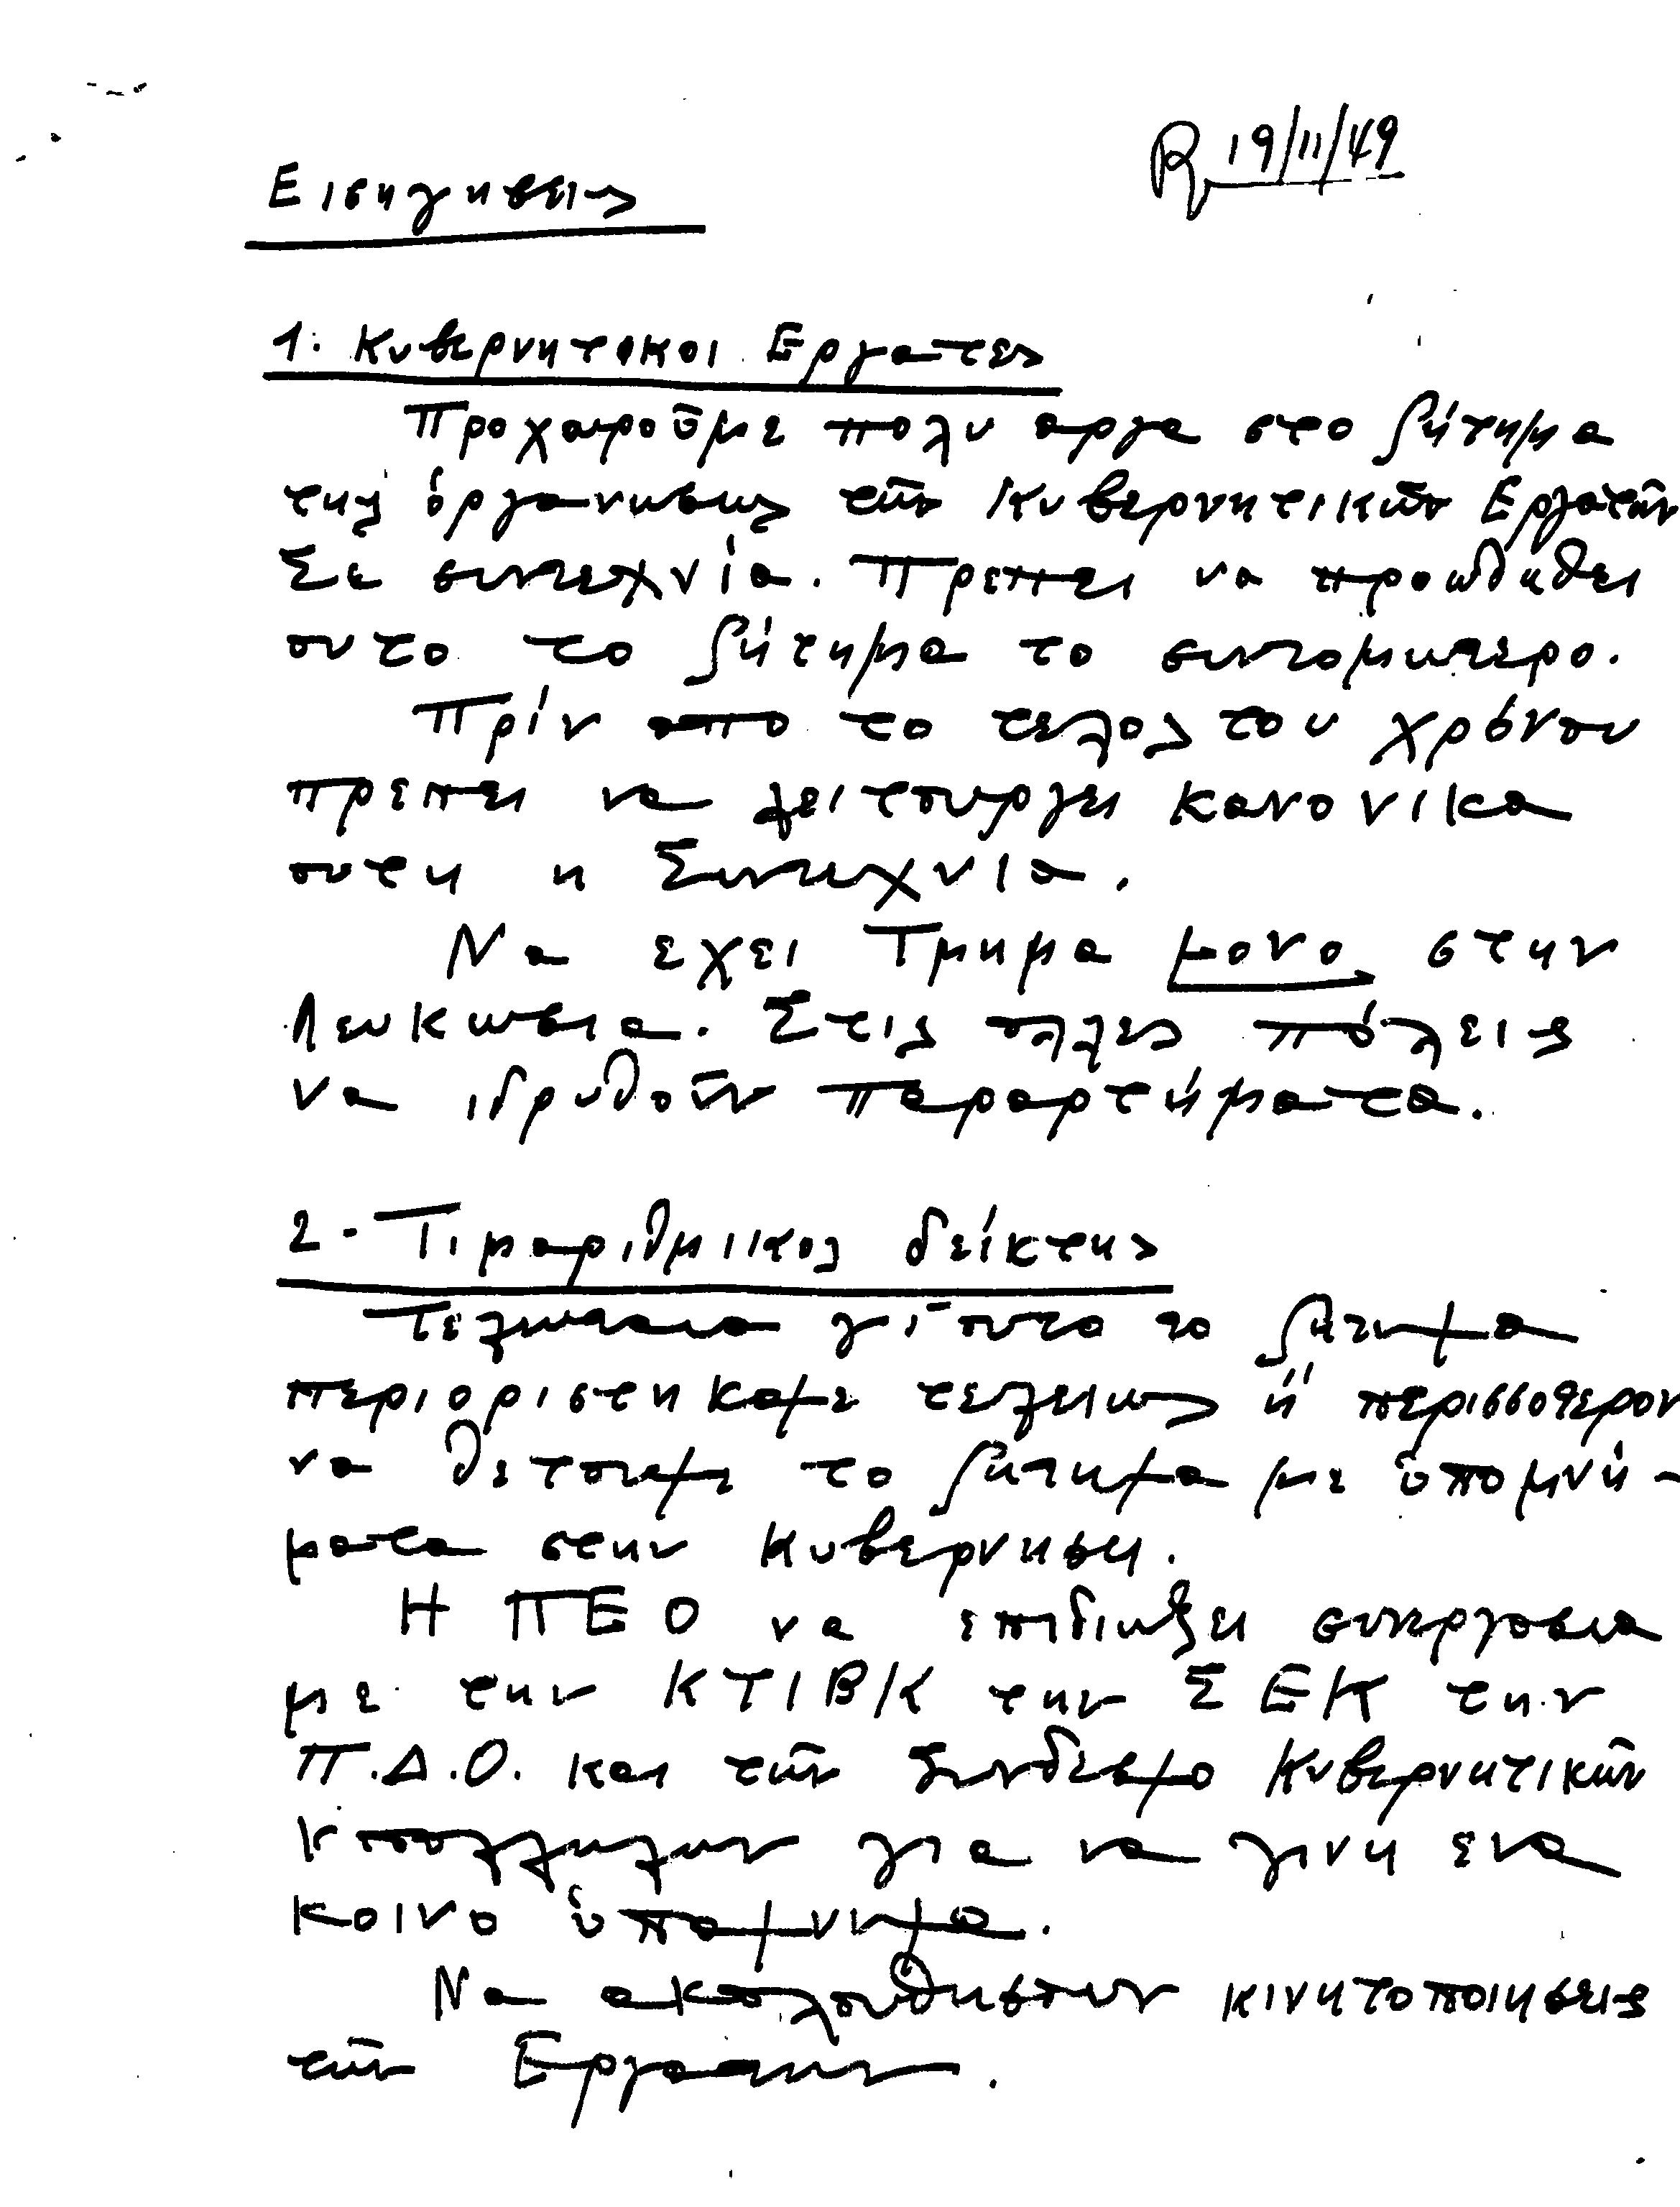 R 19/11/49
Εισηγησεις
1. Κυβερνητικοι Εργατες
Προχωρούμε πολυ αργα στο ζήτημα
της όργανωσεως τῶν Κυβερνητικῶν Εργατῶν
Σε συντεχνία. Πρεπει να προωθηθει
αυτο το ζήτημα το συντομωτερο.
Πρίν απο το τελος του χρόνου
πρεπει να λειτουργει κανονικα
αυτη η Συντεχνια.
Να εχει Τμημα μονο στην
Λευκωσια. Στις αλλες πόλεις
να ιδρυθοῦν παραρτήματα.
2 - Τιμαριθμικος δείκτης
Τελευταια γι' αυτο το ζητημα
περιοριστηκαμε τελειως ή περισσοτερον
να θετουμε το ζητημα με ὑπομνή-
ματα στην Κυβερνηση.
Η ΠΕΟ να επιδιωξει συνεργασια
με την ΚΤΙΒΚ την ΣΕΚ την
Π.Δ.Ο. και τῶν Συνδεσμο Κυβερνητικῶν
Υπαλληλων για να γινη ενα
κοινο ὑπομνημα.
Να ακολουθησουν κινητοποιησεις
τῶν Εργατων.